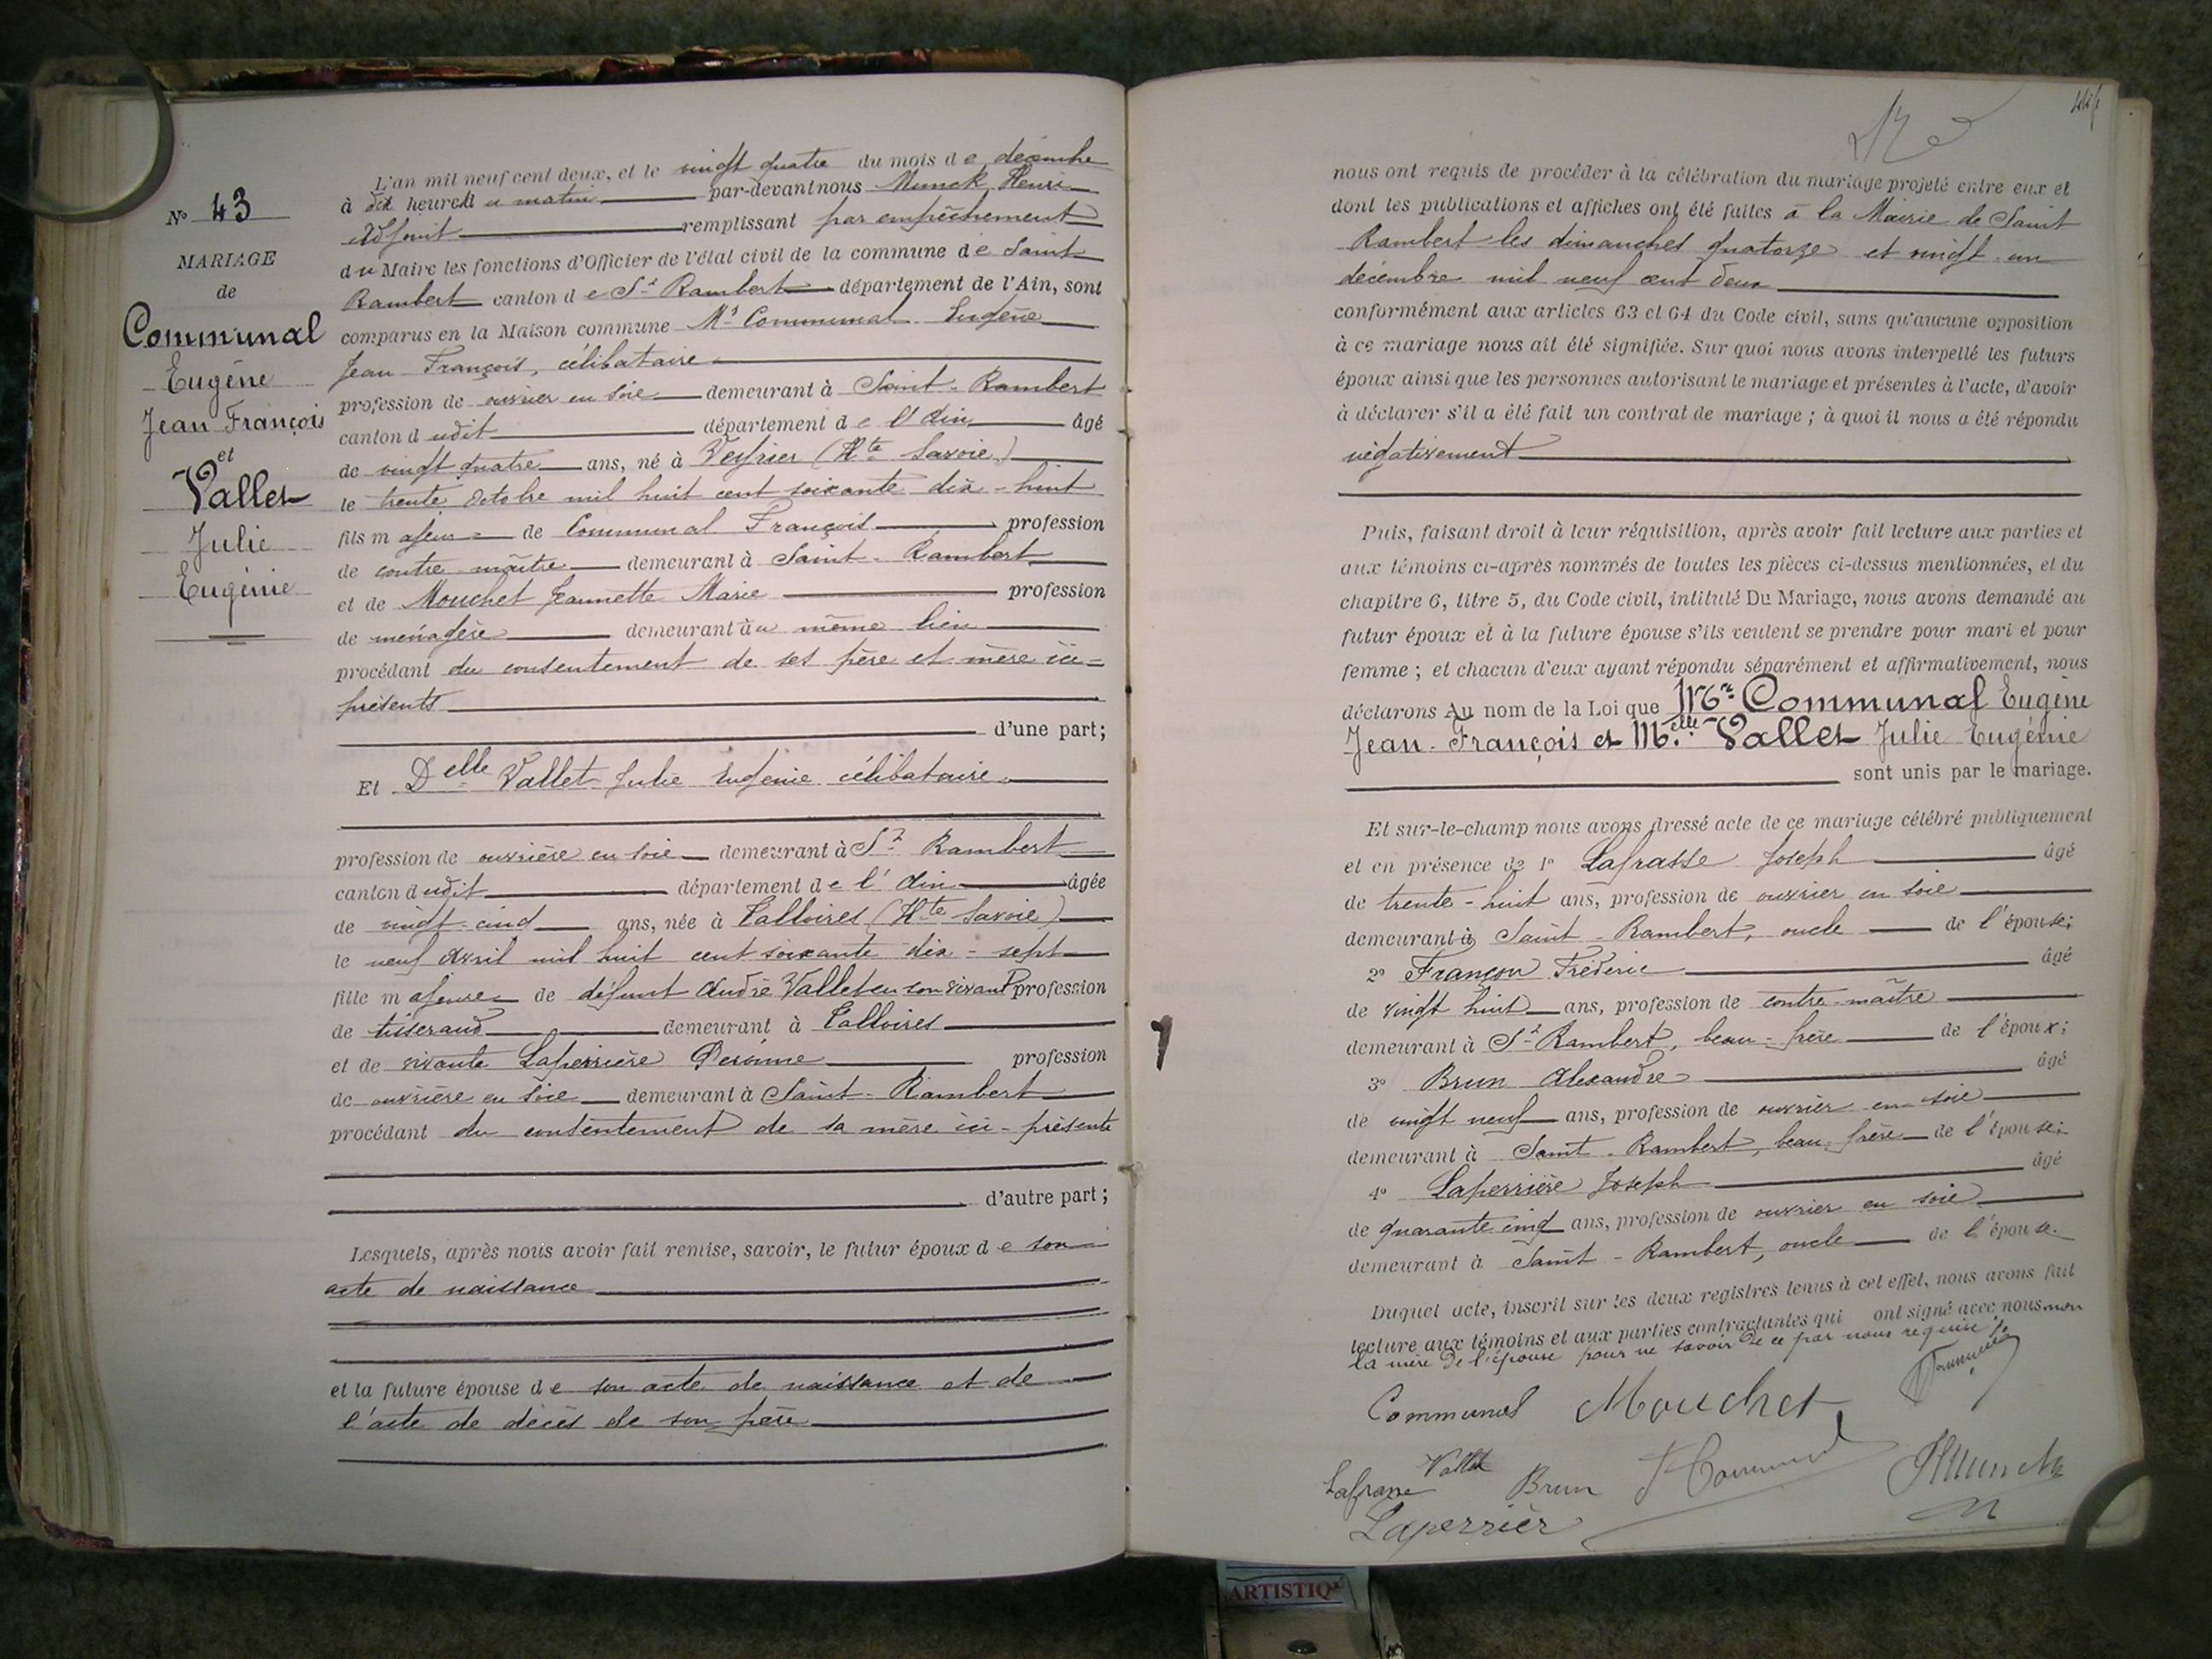 N° 43
MARIAGE
de
Communal
Eugène
Jean François
et
Vallet
Julie
Eugénie
L'an mil neuf cent deux, et le vingt quatre du mois de décembre
à dix heures du matin par-devant nous Munck Henri
Adjoint remplissant par empêchement
du Maire les fonctions d'Officier de l'état civil de la commune de Saint
Rambert canton de St Rambert département de l'Ain, sont
comparus en la Maison commune Mr Communal Eugène
Jean François, célibataire
profession de ouvrier en soie demeurant à Saint-Rambert
canton dudit département de l'Ain âgé
de vingt quatre ans, né à Veyrier (Hte Savoie)
le trente Octobre mil huit cent soixante dix-huit
fils majeur de Communal François profession
de contre-maître demeurant à Saint-Rambert
et de Mouchet Jeannette Marie profession
de ménagère demeurant au même lieu
procédant du consentement de ses père et mère ici-
présents
d'une part;
Et Delle Vallet Julie Eugénie célibataire
profession de ouvrière en soie demeurant à St Rambert
canton dudit département de l'Ain âgée
de vingt-cinq ans, née à Talloires (Hte Savoie)
le neuf Avril mil huit cent soixante dix-sept
fille majeure de défunt André Vallet en son vivant profession
de tisserand demeurant à Talloires
et de vivante Laperrière Péronne profession
de ouvrière en soie demeurant à Saint-Rambert
procédant du consentement de sa mère ici-présente
d'autre part;
Lesquels, après nous avoir fait remise, savoir, le futur époux de son
acte de naissance
et la future épouse de son acte de naissance et de
l'acte de décès de son père
nous ont requis de procéder à la célébration du mariage projeté entre eux et
dont les publications et affiches ont été faites à la Mairie de Saint
Rambert les dimanches quatorze et vingt-un
décembre mil neuf cent deux
conformément aux articles 63 et 64 du Code civil, sans qu'aucune opposition
à ce mariage nous ait été signifiée. Sur quoi nous avons interpellé les futurs
époux ainsi que les personnes autorisant le mariage et présentes à l'acte, d'avoir
à déclarer s'il a été fait un contrat de mariage; à quoi il nous a été répondu
négativement
Puis, faisant droit à leur réquisition, après avoir fait lecture aux parties et
aux témoins ci-après nommés de toutes les pièces ci-dessus mentionnées, et du
chapitre 6, titre 5, du Code civil, intitulé Du Mariage, nous avons demandé au
futur époux et à la future épouse s'ils veulent se prendre pour mari et pour
femme; et chacun d'eux ayant répondu séparément et affirmativement, nous
déclarons Au nom de la Loi que Mr Communal Eugène
Jean-François et Melle Vallet Julie Eugénie
sont unis par le mariage.
Et sur-le-champ nous avons dressé acte de ce mariage célébré publiquement
et en présence de 1° Lafrasse Joseph âgé
de trente-huit ans, profession de ouvrier en soie
demeurant à Saint-Rambert, oncle de l'épouse;
2° Françon Frédéric âgé
de vingt huit ans, profession de contre-maître
demeurant à St Rambert, beau-frère de l'époux;
3° Brun Alexandre âgé
de vingt neuf ans, profession de ouvrier en soie
demeurant à Saint-Rambert, beau-frère de l'épouse;
4° Laperrière Joseph âgé
de quarante cinq ans, profession de ouvrier en soie
demeurant à Saint-Rambert, oncle de l'épouse.
Duquel acte, inscrit sur les deux registres tenus à cet effet, nous avons fait
lecture aux témoins et aux parties contractantes qui ont signé avec nous, non
la mère de l'épouse pour ne savoir de ce par nous requise.
Communal Mouchet
Vallet
Lafrasse Brun HMunck
Laperrièr
ARTISTIQ